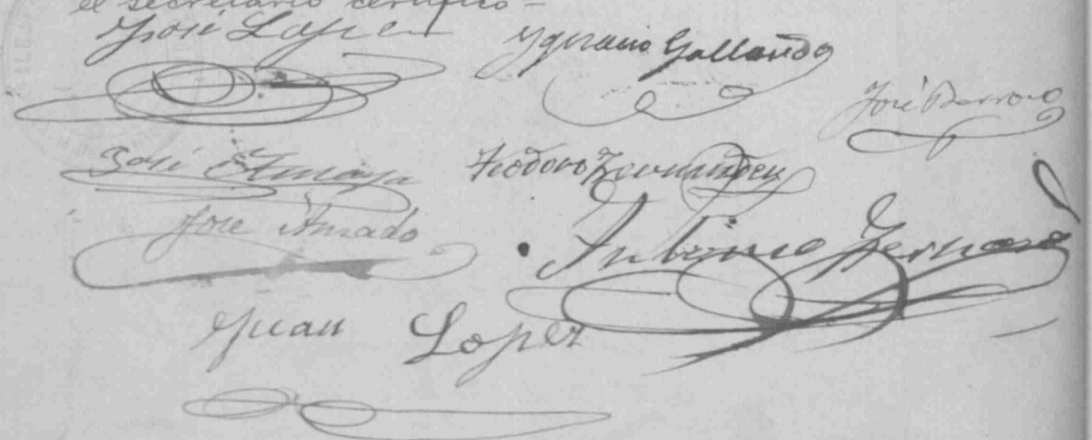 el secretario certifico -
José Lopez
Ygnacio Gallardo
José Barroso
José
Teodoro Fernandez
Jose Amado
Antonio
Juan Lopez